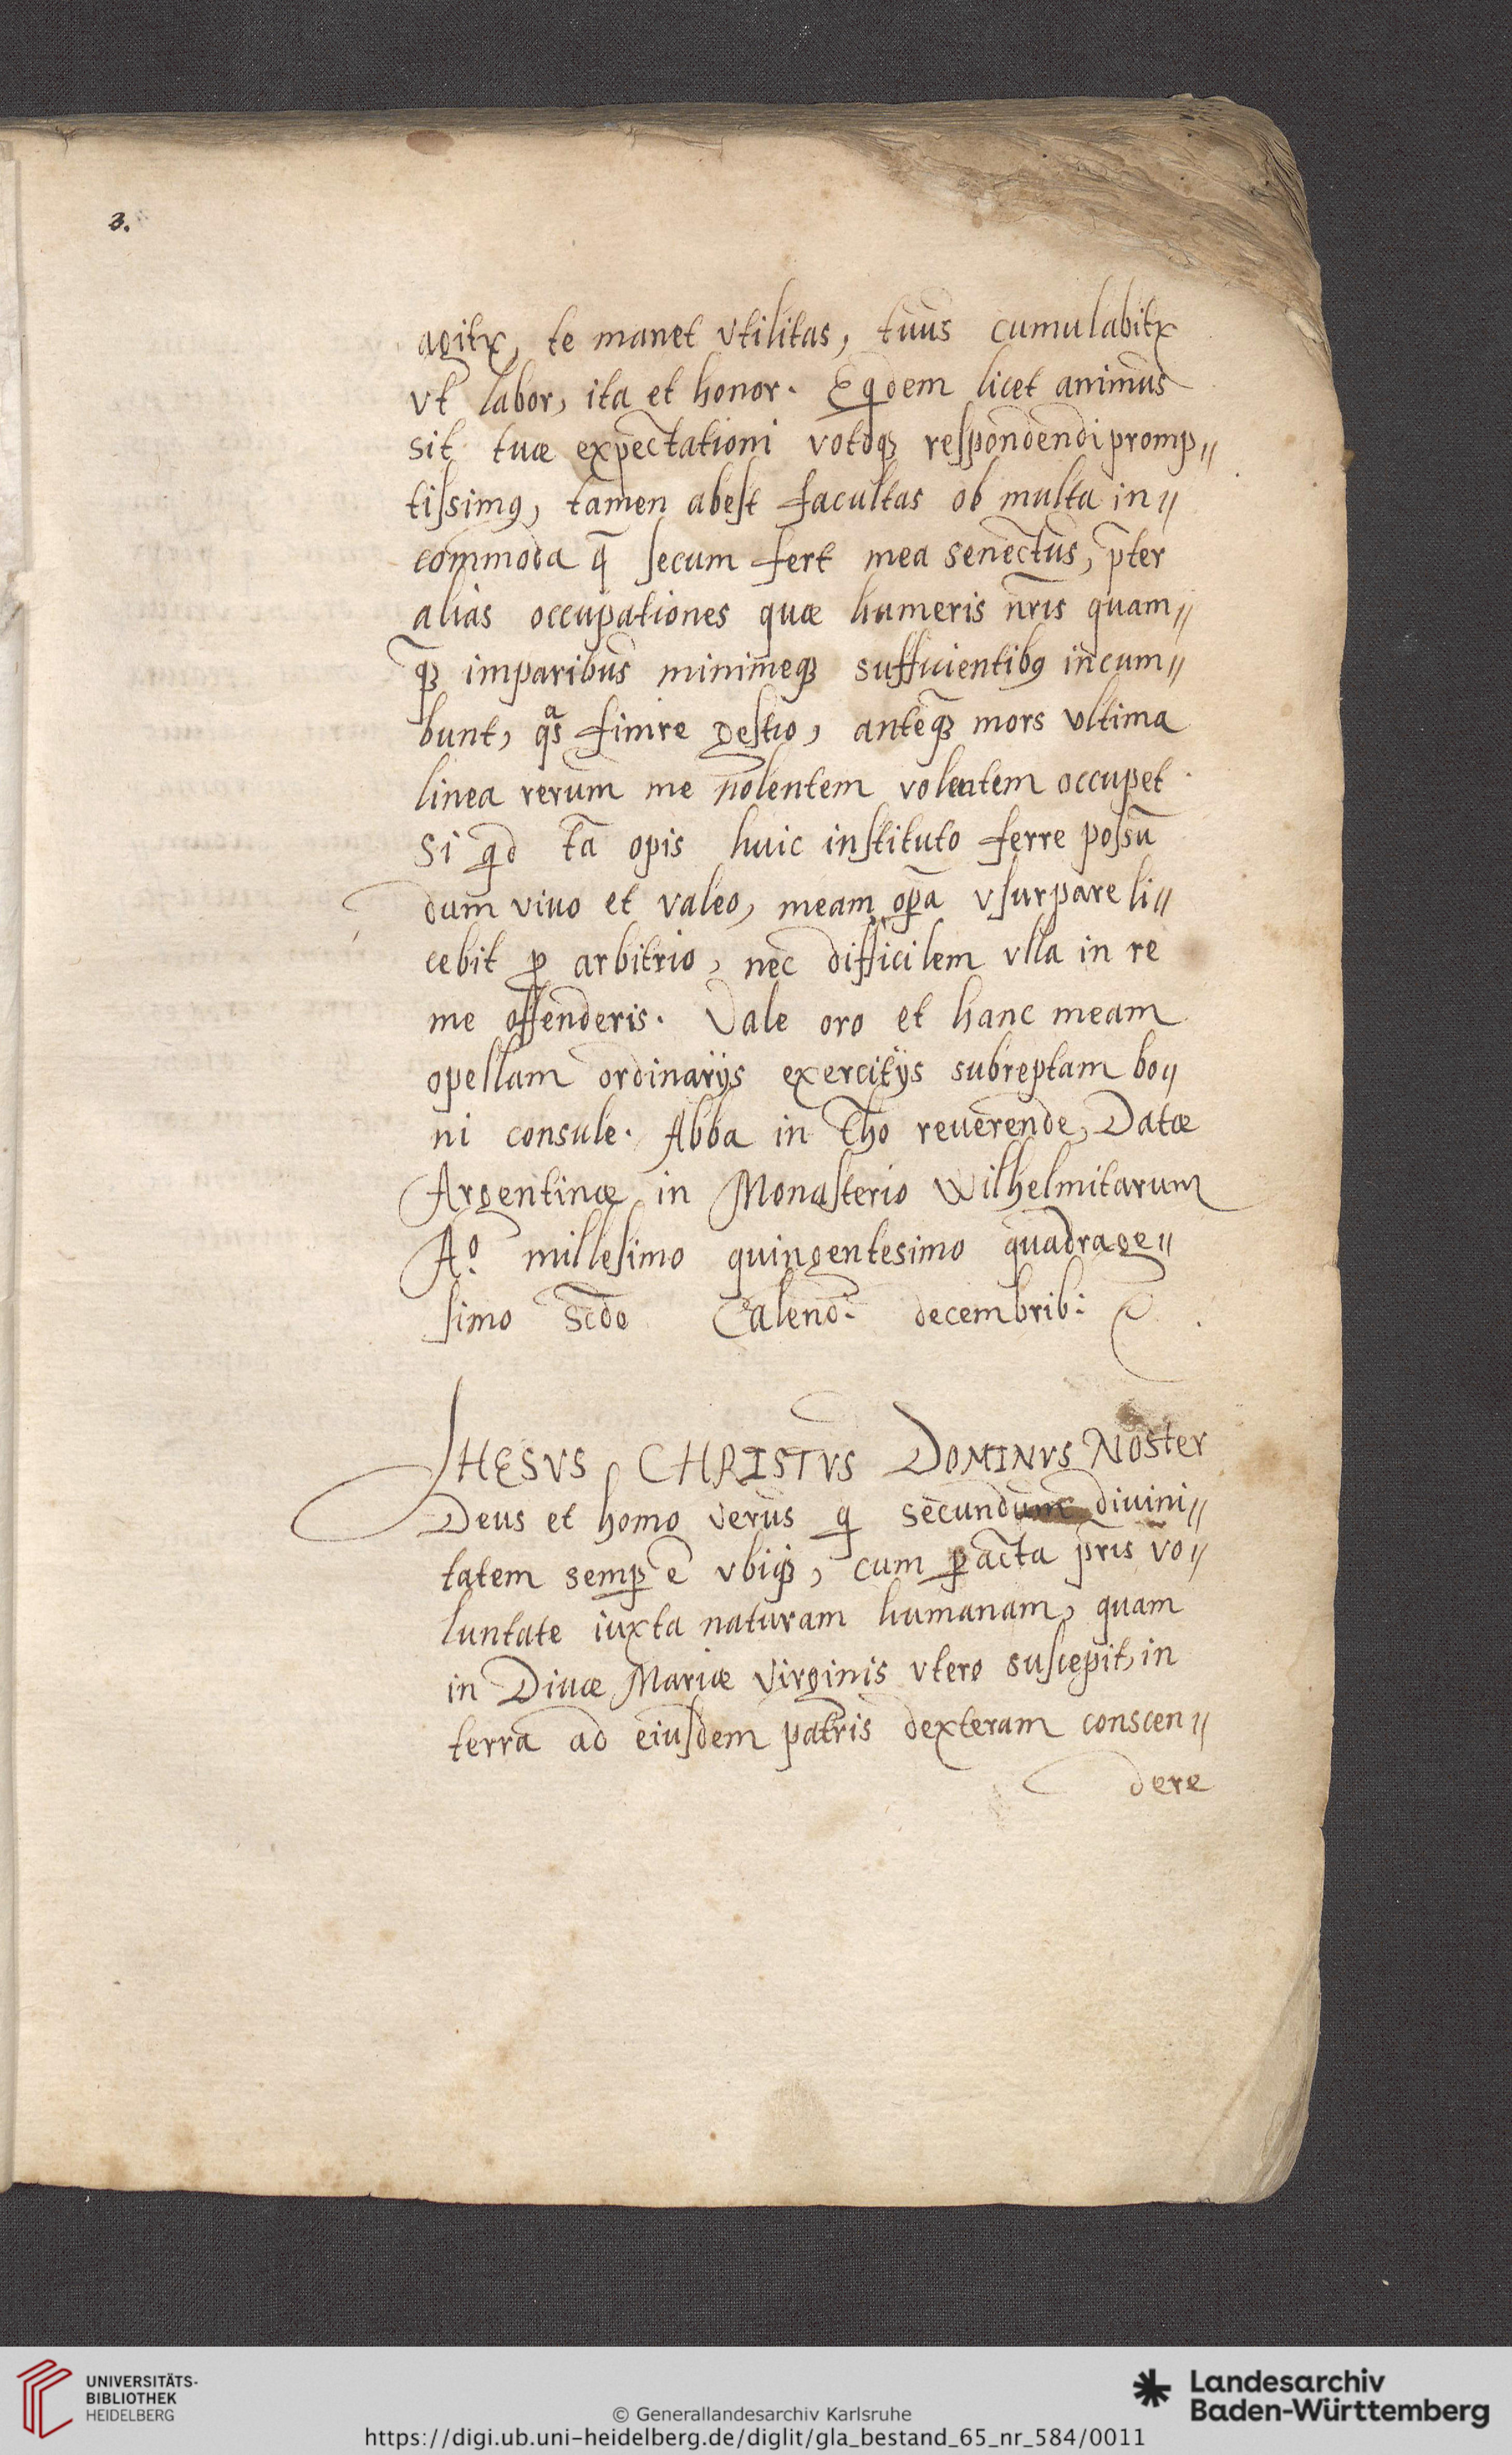 3.
agitꝝ, te manet vtilitas, tuus cumulabitꝝ
vt labor, ita et honor. Eqdem licet animus
sit tuæ expectationi votoqꝫ respondendi promp„
tissimꝰ, tamen abest facultas ob multa in„
commoda q̄ secum fert mea senectus, p̄ter
alias occupationes quæ humeris nr̄is quam„
qꝫ imparibus minimeqꝫ sufficientibꝰ incum„
bunt, qᵃs finire gestio, anteqꝫ mors vltima
linea rerum me nolentem volentem occupet
Si qd tā opis huic instituto ferre possū
dum viuo et valeo, meam opā vsurpare li„
cebit ꝓ arbitrio, nec difficilem vlla in re
me offenderis. Vale oro et hanc meam
opellam ordinarijs exercitijs subreptam bo„
ni consule. Abba in Chō reuerende, Datæ
Argentinæ in Monasterio Wilhelmitarum
Aº. millesimo quingentesimo quadrage„
simo Scd̄o Calend: decembrib:
IHESVS CHRISTVS DOMINVS Noster
Deus et homo verus q secundum diuini„
tatem semꝑ ē vbiqꝫ, cum ꝑacta pr̄is vo„
luntate iuxta naturam humanam, quam
in Diuæ Mariæ Virginis vtero suscepit, in
terra ad eiusdem patris dexteram conscen„
dere
UNIVERSITÄTS-
BIBLIOTHEK
HEIDELBERG
© Generallandesarchiv Karlsruhe
https://digi.ub.uni-heidelberg.de/diglit/gla_bestand_65_nr_584/0011
Landesarchiv
Baden-Württemberg